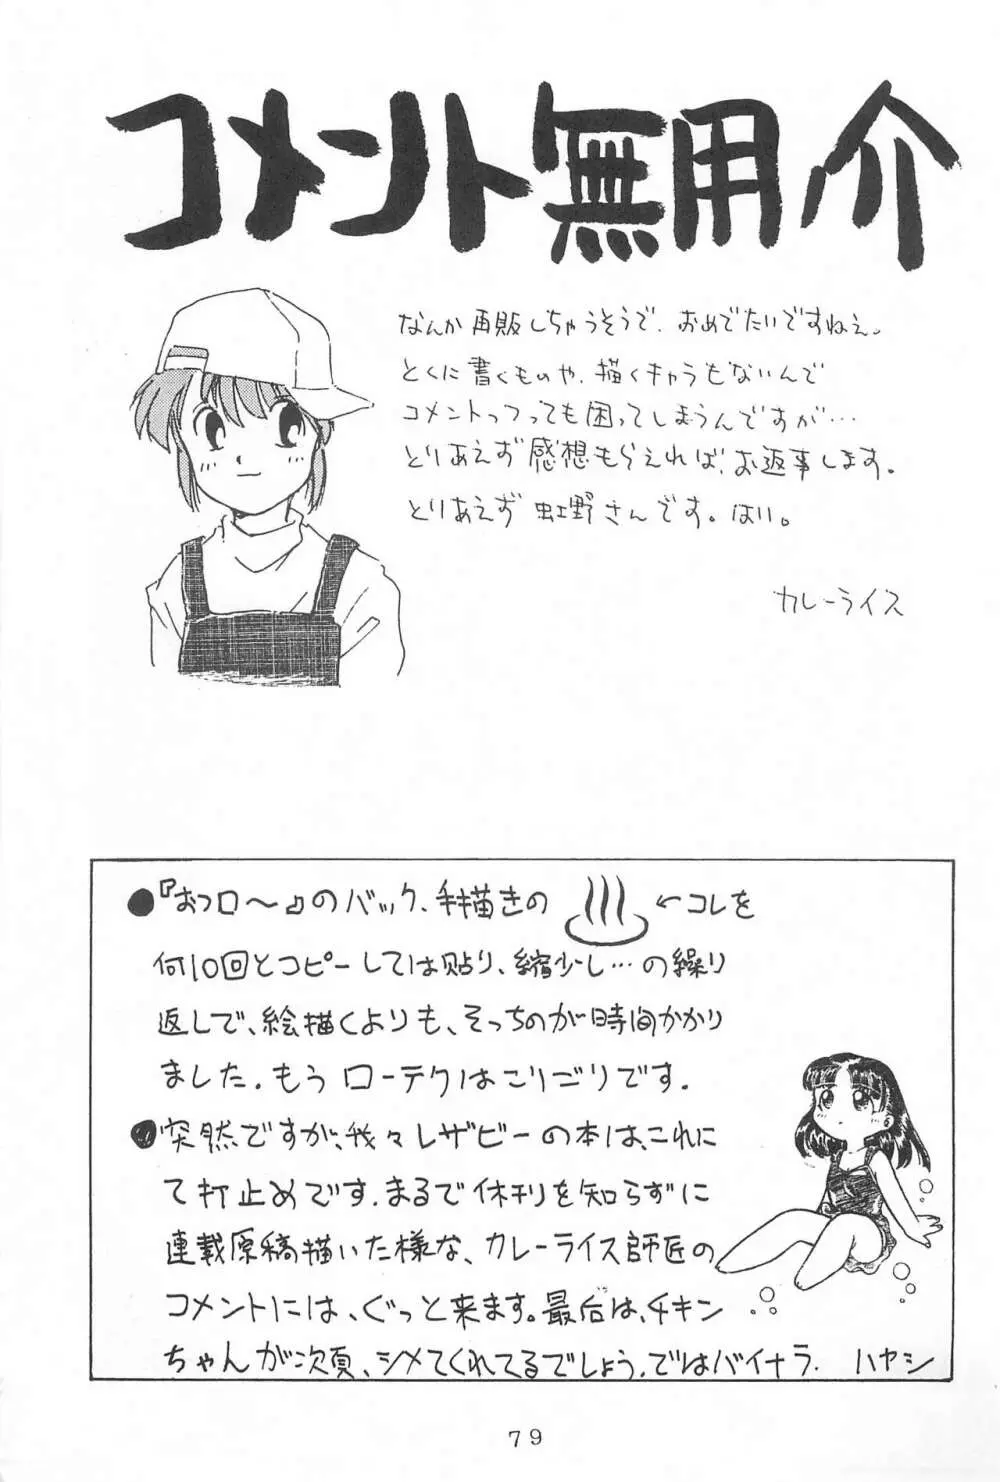 コメント無用ノ介
なんか再販しちゃうそうで、おめでたいですねえ。
とくに書くものや、描くキャラもないんで
コメントっつっても困ってしまうんですが…
とりあえず感想もらえれば、お返事します。
とりあえず虹野さんです。はい。
カレーライス
●『おフロ〜』のバック、手描きの ←コレを
何10回とコピーしては貼り、縮少し…の繰り
返しで、絵描くよりも、そっちのが時間かかり
ました。もうローテクはこりごりです。
●突然ですが、我々レザビーの本は、これに
て打止めです。まるで休刊を知らずに
連載原稿描いた様な、カレーライス師匠の
コメントには、ぐっと来ます。最后は、チキン
ちゃんが次頁、シメてくれてるでしょう。ではバイナラ. ハヤシ
79